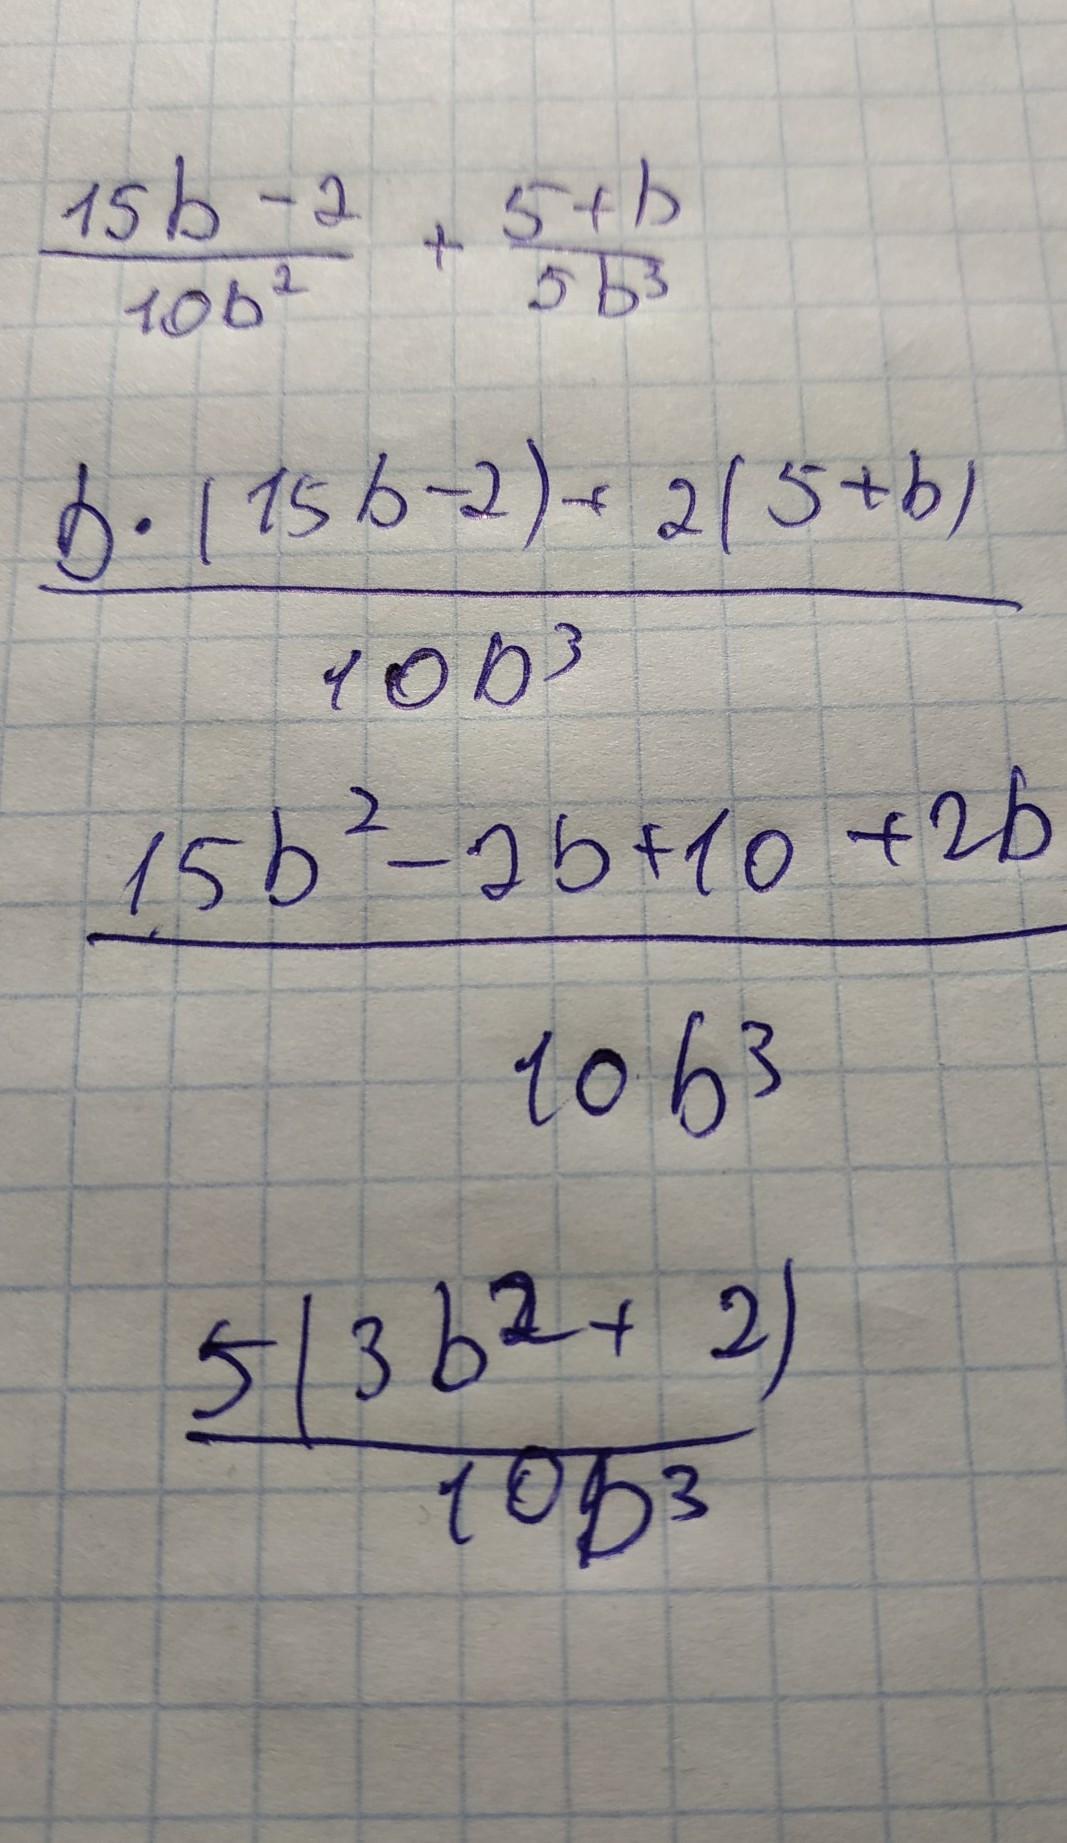 15b - 2 + 5 + b
10b² 5b³
b · (15b - 2) + 2(5 + b)
10b³
15b² - 2b + 10 + 2b
10b³
5(3b² + 2)
10b³